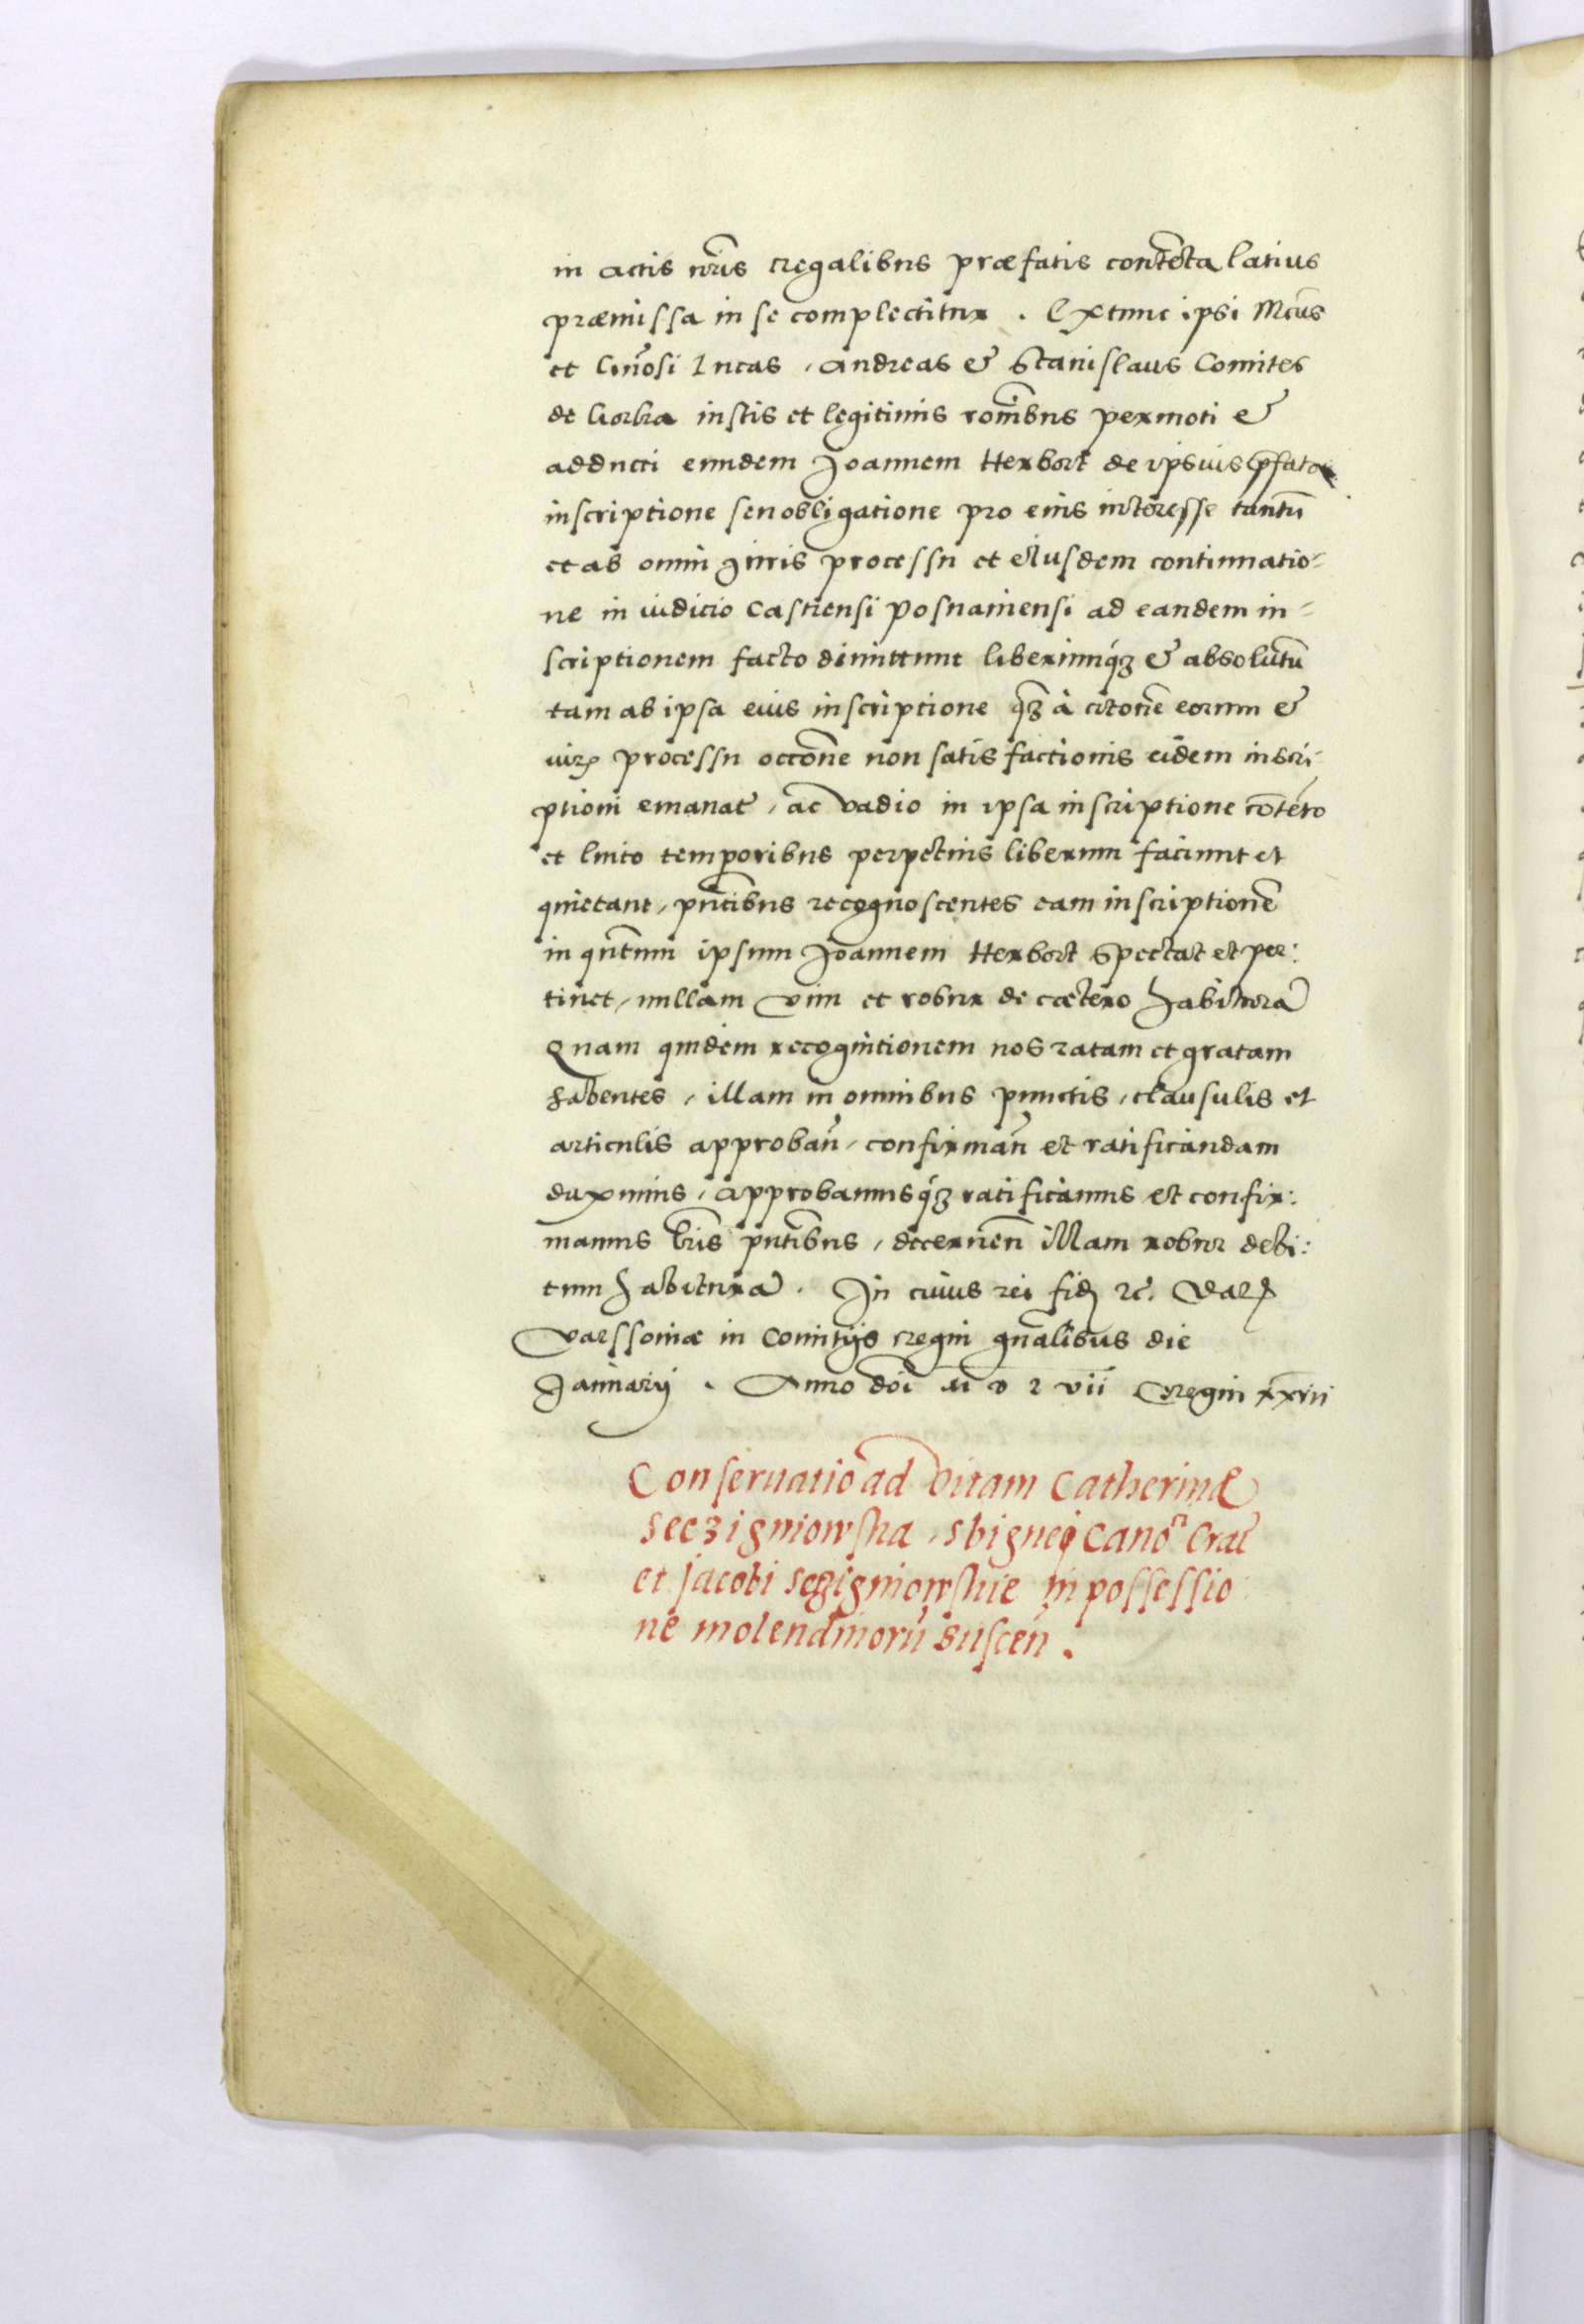 in actis nr̃is regalibus præfatis contẽta latius
præmissa in se complectitur . Extunc ipsi Mc̃us
et Gñosi Lucas , Andreas & Stanislaus Comites
de Gorka iustis et legitimis rom̃ibus permoti &
adducti eundem Joannem Herbort de ipsius p̃fata
inscriptione seu obligatione pro eius interesse tantũ
et ab omni iuris processu et eiusdem continuatio-
ne in iudicio Castrensi Posnaniensi ad eandem in-
scriptionem facto dimittunt liberumq́ʒ & absolutũ
tam ab ipsa eius inscriptione q̃ʒ à citoñe eorum &
iurꝭ processu occoñe non satisfactionis eidem inscri-
ptioni emanať , ac vadio in ipsa inscriptione cõtẽto
et luito temporibus perpetuis liberum faciunt et
quietant , pñtibus recognoscentes eam inscriptionẽ
in qñtum ipsum Joannem Herbort spectat et per:
tinet , nullam vim et robur de cætero habiturã
Quam quidem recognitionem nos ratam et gratam
habentes , illam in omnibus punctis , clausulis et
articulis approbañ , confirmañ et ratificandam
duximus , approbamusq́ʒ ratificamus et confir:
mamus lr̃is pñtibus , decerneñ illam robur debi:
tum habiturã . In cuius rei fidꝫ ꝛc̃. Datꝭ
Varssoviæ in Comitijs regni gñalibus die
Januarij . Anno doi M D L VII Regni xxviii
Conservatio ad vitam Catherinæ
Seczigniowska , Sbignei Cano.n Crac̃
et Jacobi Seczigniowskie in possessio
nẽ molendinorũ Susceñ .